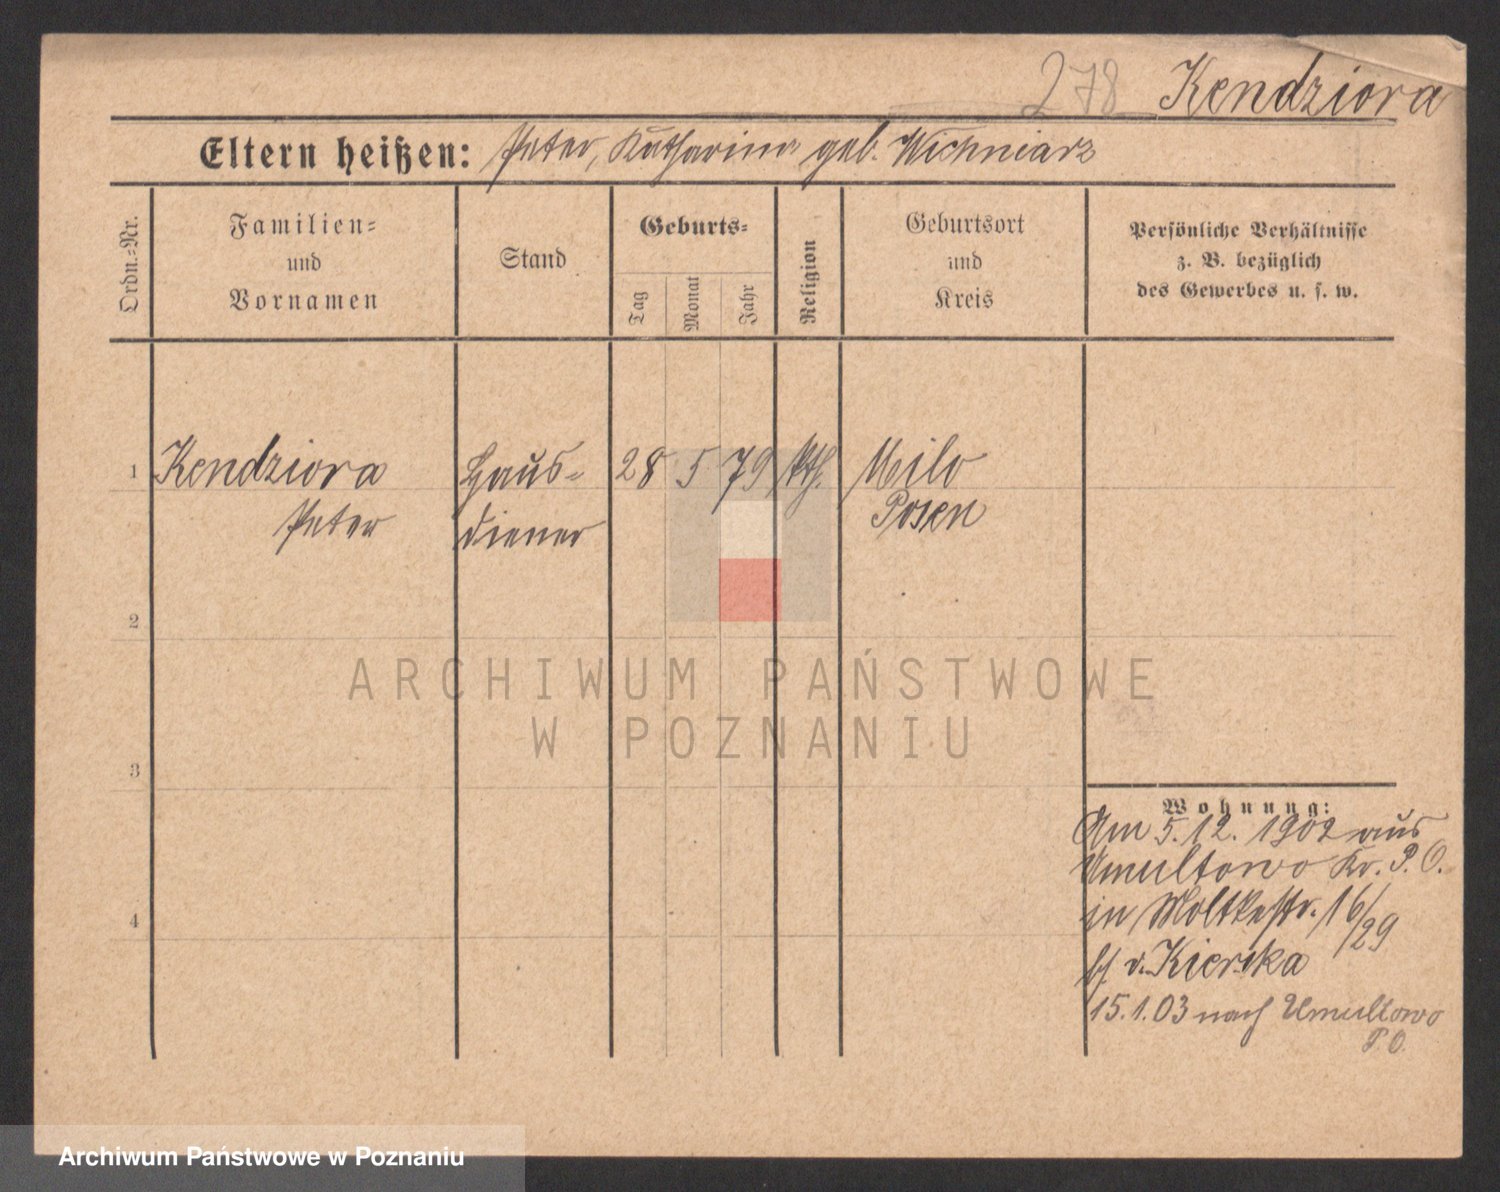 278 Kendziora
Eltern heißen: Peter, Katharina geb. Wichniarz
Ordn.-Nr.
Familien-
und
Vornamen
Stand
Geburts-
Tag
Monat
Jahr
Religion
Geburtsort
und
Kreis
Persönliche Verhältnisse
z. B. bezüglich
des Gewerbes u. s. w.
1 Kendziora Haus- 28 5 79 kth. Milo
Peter diener Posen
2
ARCHIWUM PAŃSTWOWE
W POZNANIU
3
Wohnung:
Am 5.12. 1902 aus
Umultowo Kr. P. O.
4
in Moltkestr. 16/29
b/ v. Kierska
15.1.03 nach Umultowo
P. O.
Archiwum Państwowe w Poznaniu